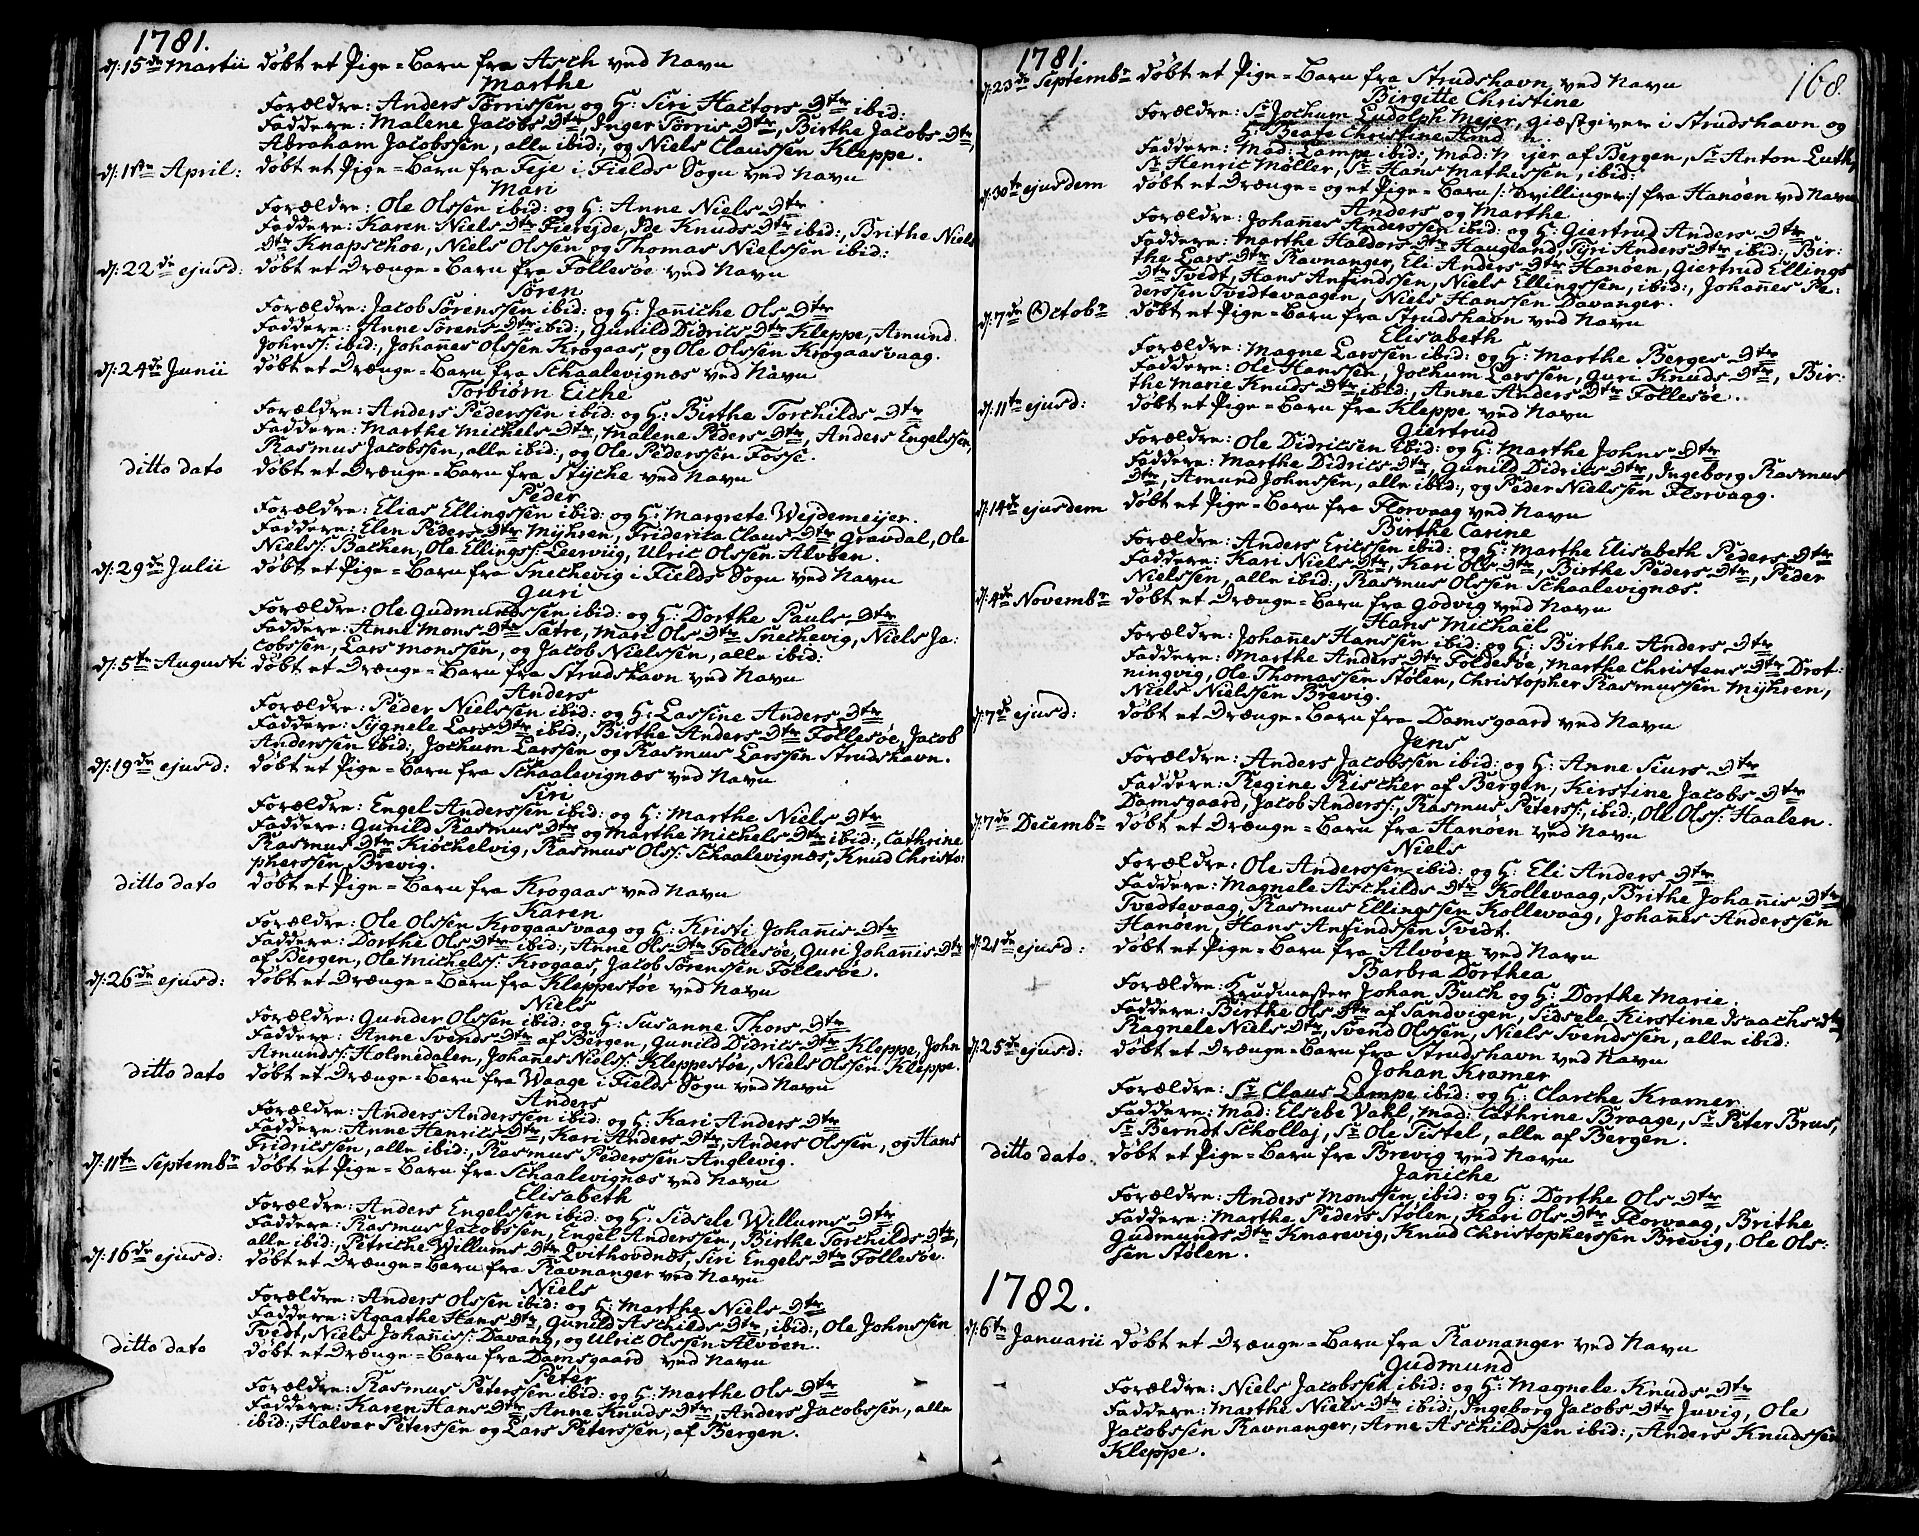 1781.
d: 15de Martii døbt et Pige=Barn fra Asch ved Navn
Marthe
Forældre: Anders Tørrissen og H: Siri Hactors Dtr ibid:
Faddere: Malene Jacobs Dtr, Inger Tørris Dtr, Birthe Jacobs Dtr,
Abraham Jacobssen, alle ibid:, og Niels Claussen Kleppe.
d: 1ste April: døbt et Pige=Barn fra Feje i Fields Sogn ved Navn
Mari
Forældre: Ole Olssen ibid: og H: Anne Niels Dtr
Faddere: Karen Niels Dtr Fierejde, Ide Knuds Dtr ibid:, Brithe Niels
Dtr Knapschoe, Niels Olssen og Thomas Nielssen ibid:
d: 22de ejusd: døbt et Drænge=Barn fra Follesøe ved Navn
Søren
Forældre: Jacob Sørenssen ibid: og H: Janniche Ols Dtr
Faddere: Anne Sørens Dtr ibid:, Gunild Didrics Dtr Kleppe, Amund
Johns: ibid:, Johannes Olssen Krogaas, og Ole Olssen Krogaasvaag.
d: 24de Junii døbt et Drænge=Barn fra Schaalevignæs ved Navn
Torbiørn Eiche
Forældre: Anders Pederssen ibid: og H: Birthe Torchilds Dtr
Faddere: Marthe Michels Dtr, Malene Peders Dtr, Anders Engelssen,
Rasmus Jacobssen, alle ibid:, og Ole Pederssen Fosse.
ditto dato døbt et Drænge=Barn fra Stÿche ved Navn
Peder
Forældre: Elias Ellingssen ibid: og H: Margrete Wejdemeijer.
Faddere: Elen Peders Dtr Mÿhren, Friderica Claus Dtr Gravdal, Ole
Niels: Bachen, Ole Ellings: Leerviig, Ulric Olssen Alvøen.
d: 29de Julii døbt et Pige=Barn fra Snechevig i Fields Sogn ved Navn
Guri
Forældre: Ole Gudmundssen ibid: og H: Dorthe Pauls Dtr
Faddere: Anne Mons Dtr Satre, Mari Ols Dtr Snechevig, Niels Ja:
cobssen, Lars Monssen, og Jacob Nielssen, alle ibid:
d: 5te Augusti døbt et Drænge=Barn fra Strudshavn ved Navn
Anders
Forældre: Peder Nielssen ibid: og H: Lassine Anders Dtr
Faddere: Sÿgnele Lars Dtr ibid:, Birthe Anders Dtr Follesøe, Jacob
Anderssen ibid:, Jochum Larssen og Rasmus Larssen Strudshavn.
d: 19de ejusd: døbt et Pige=Barn fra Schaalevignæs ved Navn
Siri
Forældre: Engel Anderssen ibid: og H: Marthe Niels Dtr
Faddere: Gunild Rasmus Dtr og Marthe Michels Dtr ibid:, Cathrine
Rasmus Dtr Kiøchelvig, Rasmus Ols: Schaalevignæs, Knud Christo:
pherssen Brevig.
ditto dato døbt et Pige=Barn fra Krogaas ved Navn
Karen
Forældre: Ole Olssen Krogaasvaag og H: Kristi Johannis Dtr
Faddere: Dorthe Ols Dtr ibid:, Anne Ols Dtr Follesøe, Guri Johannis Dtr
af Bergen, Ole Michels: Krogaas, Jacob Sørenssen Follesøe.
d: 26de ejusd: døbt et Drænge=Barn fra Kleppestøe ved Navn
Niels
Forældre: Gunder Olssen ibid: og H: Susanne Thors Dtr
Faddere: Anne Svends Dtr af Bergen, Gunild Didrics Dtr Kleppe, John
Amunds: Holmedalen, Johanes Niels: Kleppestøe, Niels Olssen Kleppe.
ditto dato døbt et Drænge=Barn fra Waage i Fields Sogn ved Navn
Anders
Forældre: Anders Anderssen ibid: og H: Kari Anders Dtr
Faddere: Anne Henrics Dtr, Kari Anders Dtr, Anders Olssen, og Hans
Fridricssen, alle ibid:, Rasmus Pederssen Anglevig.
d: 11te Septembr døbt et Pige=Barn fra Schaalevignæs ved Navn
Elisabeth
Forældre: Anders Engelssen ibid: og H: Sidsele Willums Dtr
Faddere: Rasmus Jacobssen, Engel Anderssen, Birthe Torchilds Dtr,
alle ibid:, Petriche Willums Dtr Qvithovdnæs, Siri Engels Dtr Follesøe.
d: 16de ejusd: døbt et Drænge=Barn fra Ravnanger ved Navn
Niels
Forældre: Anders Olssen ibid: og H: Marthe Niels Dtr
Faddere: Agaathe Hans Dtr, Gunild Aschilds Dtr, ibid:, Ole Johnssen
Tvedt, Niels Johannis: Davang, og Ulric Olssen Alvøen.
ditto dato døbt et Drænge=Barn fra Damsgaard ved Navn
Peter
Forældre: Rasmus Peterssen ibid: og H: Marthe Ols Dtr
Faddere: Karen Hans Dtr, Anne Knuds Dtr, Anders Jacobssen, alle
ibid:, Halvar Peterssen og Lars Peterssen, af Bergen.
1781.
168
d: 23de Septembr døbt et Pige=Barn fra Strudshavn ved Navn
Birgitte Christine
Forældre: Sr Jochum Ludolph Mejer, giæstgiver i Strudshavn og
H: Beate Christine
Faddere: Mad: Lampe ibid:, Mad: af Bergen, Sr Anton Luth,
Sr Henric Møller, Sr Hans Mathessen, ibid:
d: 30te ejusdem døbt et Drænge= og et Pige=Barn /: Tvillinger :/ fra Hanøen ved Navn
Anders og Marthe
Forældre: Johannes Anderssen ibid: og H: Giertrud Anders Dtr
Faddere: Marthe Haldors Dtr Haugland, Tÿri Anders Dtr ibid:, Bir:
the Lars Dtr Ravnanger, Eli Anders Dtr Hanøen, Giertrud Ellings
Dtr Tvedt, Hans Anfindssen, Niels Ellingssen, ibid:, Johannes Pe:
derssen Tvedtevaagen, Niels Hanssen Davanger.
d: 7de Octobr døbt et Pige=Barn fra Strudshavn ved Navn
Elisabeth
Forældre: Magne Larssen ibid: og H: Marthe Berges Dtr
Faddere: Ole Hanssen, Jochum Larssen, Guri Knuds Dtr, Bir:
the Marie Knuds Dtr ibid:, Anne Anders Dtr Follesøe.
d: 11te ejusd: døbt et Pige=Barn fra Kleppe ved Navn
Giertrud
Forældre: Ole Didricsen ibid: og H: Marthe Johns Dtr
Faddere: Marthe Didrics Dtr, Gunild Didrics Dtr, Ingeborg Rasmus
Dtr, Amund Johnssen, alle ibid:, og Peder Nielssen Florvaag.
d: 14de ejusdem døbt et Pige=Barn fra Florvaag ved Navn
Birthe Carine
Forældre: Anders Ericssen ibid: og H: Marthe Elisabeth Peders Dtr
Faddere: Kari Niels Dtr, Kari Ols Dtr, Birthe Peders Dtr, Peder
Nielssen, alle ibid:, Rasmus Olssen Schaalevignæs.
d: 4de Novembr døbt et Drænge=Barn fra Godvig ved Navn
Hans Michael
Forældre: Johannes Hanssen ibid: og H: Birthe Anders Dtr
Faddere: Marthe Anders Dtr Foldesøe, Marthe Christens Dtr Drot:
ningvig, Ole Thomassen Stølen, Christopher Rasmussen Mÿhren,
Niels Nielssen Brevig.
d: 7de ejusd: døbt et Drænge=Barn fra Damsgaard ved Navn
Jens
Forældre: Anders Jacobssen ibid: og H: Anne Siurs Dtr
Faddere: Regine Rischer af Bergen, Kirstine Jacobs Dtr
Damsgaard, Jacob Anders:, Rasmus Peters:, ibid:, Ole Ols: Haalen.
d: 7de Decembr døbt et Drænge=Barn fra Hanøen ved Navn
Niels
Forældre: Ole Anderssen ibid: og H: Eli Anders Dtr
Faddere: Magnele Aschilds Dtr Kollevaag, Brithe Johannis Dtr
Tvedtevaag, Rasmus Ellingssen Kollevaag, Johannes Anderssen
Hanøen, Hans Anfindssen Tvedt.
d: 21de ejusd: døbt et Pige=Barn fra Alvøen ved Navn
Barbra Dorthea
Forældre: Krudmester Johan Buch og H: Dorthe Marie.
Faddere: Birthe Ols Dtr af Sandvigen, Sidsele Kirstine Isaachs Dtr,
Ragnele Niels Dtr, Svend Olssen, Niels Svendssen, alle ibid:
d: 25de ejusd: døbt et Drænge=Barn fra Strudshavn ved Navn
Johan Kramer
Forældre: Sr Claus Lampe ibid: og H: Clarche Kramer
Faddere: Mad: Elsebe Vahl, Mad: Cathrine Braage, Sr Peter Brus,
Sr Berndt Schollaj, Sr Ole Tistel, alle af Bergen.
ditto dato. døbt et Pige=Barn fra Brevig ved Navn
Janniche
Forældre: Anders Monssen ibid: og H: Dorthe Ols Dtr
Faddere: Marthe Peders Stølen, Kari Ols Dtr Florvaag, Brithe
Gudmunds Dtr Knarevig, Knud Christopherssen Brevig, Ole Ols:
sen Stølen.
1782.
d: 6te Januarii døbt et Drænge=Barn fra Ravnanger ved Navn
Gudmund
Forældre: Niels Jacobssen ibid: og H: Magnele Knuds Dtr
Faddere: Marthe Niels Dtr ibid:, Ingeborg Jacobs Dtr Juvig, Ole
Jacobssen Ravnanger, Arne Aschildssen ibid:, Anders Knudssen
Kleppe.